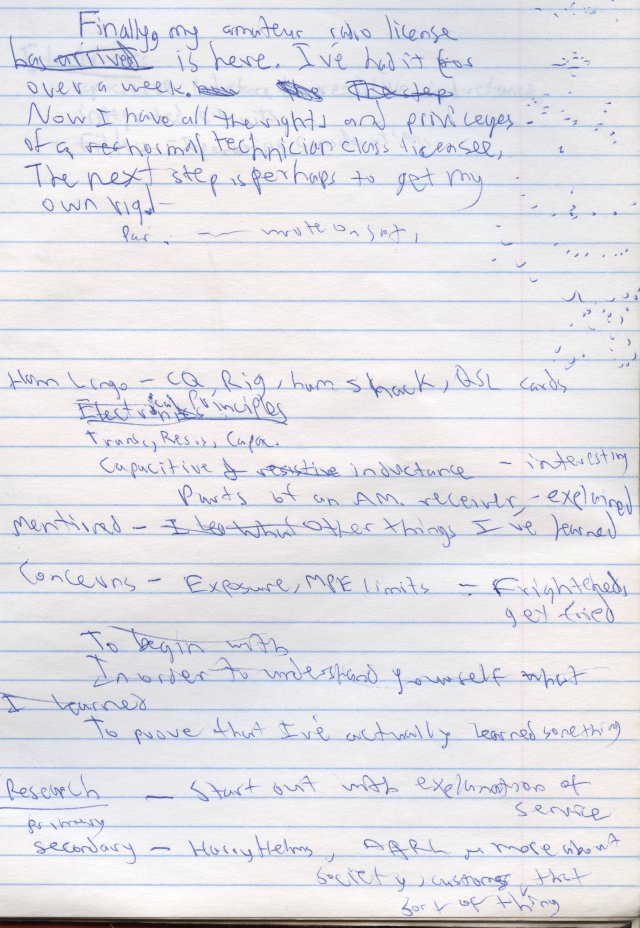 Finally, my amateur radio license
has arrived is here. I've had it for
over a week. The The step
Now I have all the rights and privileges
of a normal technician class licensee,
The next step is perhaps to get my
own rig.
Par. — wrote on set,
Ham Lingo - CQ, Rig, ham shack, QSL cards
Electronics ical Principles
Trans., Resis, Capa.
Capacitive & resistive inductance - interesting
Parts of an AM. receiver, - explained
Mentioned - I learned what Other things I've learned
Concerns - Exposure, MPE limits - Frightened,
get fried
To begin with
In order to understand yourself what
I learned
To prove that I've actually learned something
Research - Start out with explanation of
service
primary
secondary - Harry Helms, ARRL more about
society, customs, that
sort of thing